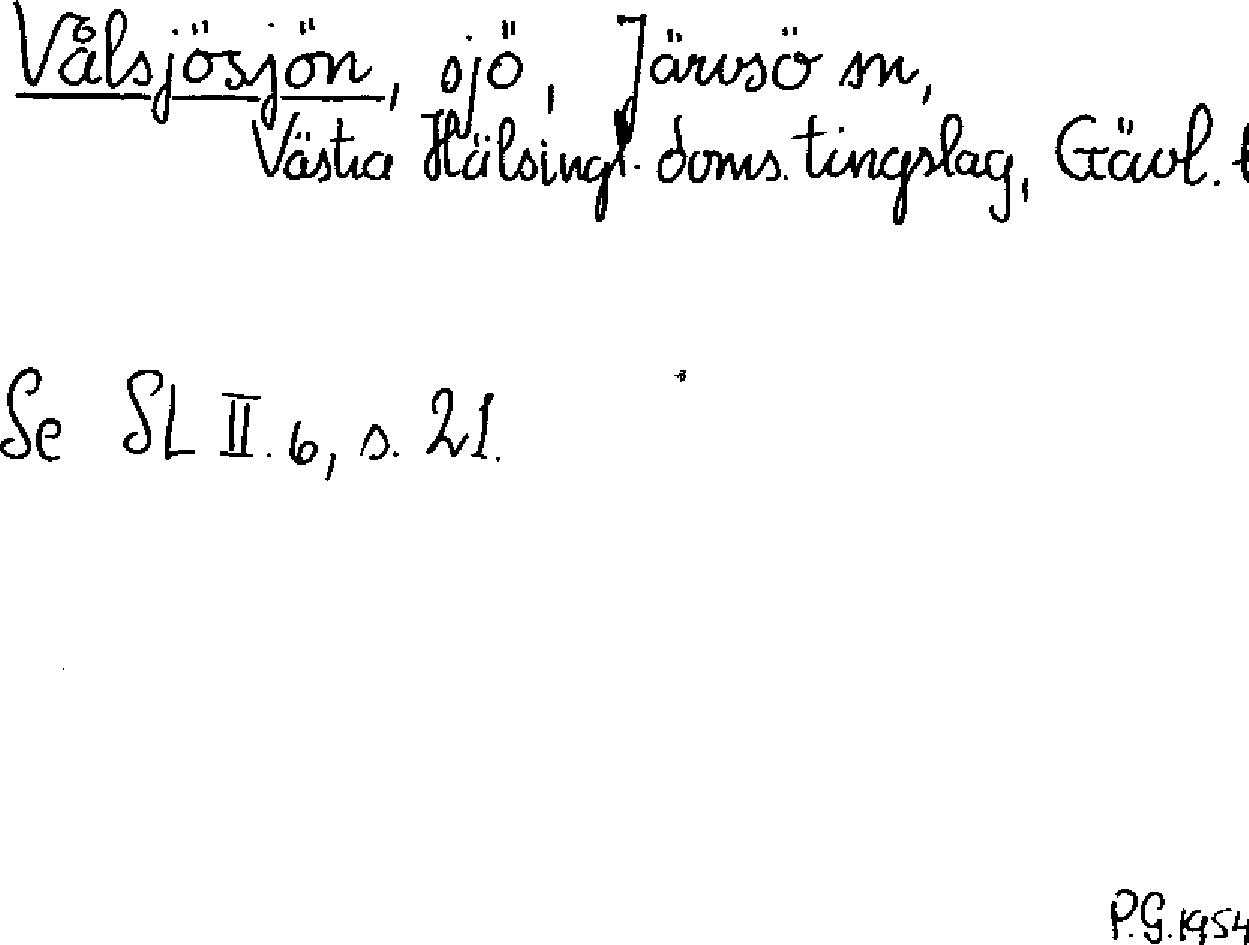 Vålsjösjön, sjö, Järvsö sn,
Västra Hälsingl. doms. tingslag, Gävl.
Se SL II. 6, s. 21.
P.G. 1954